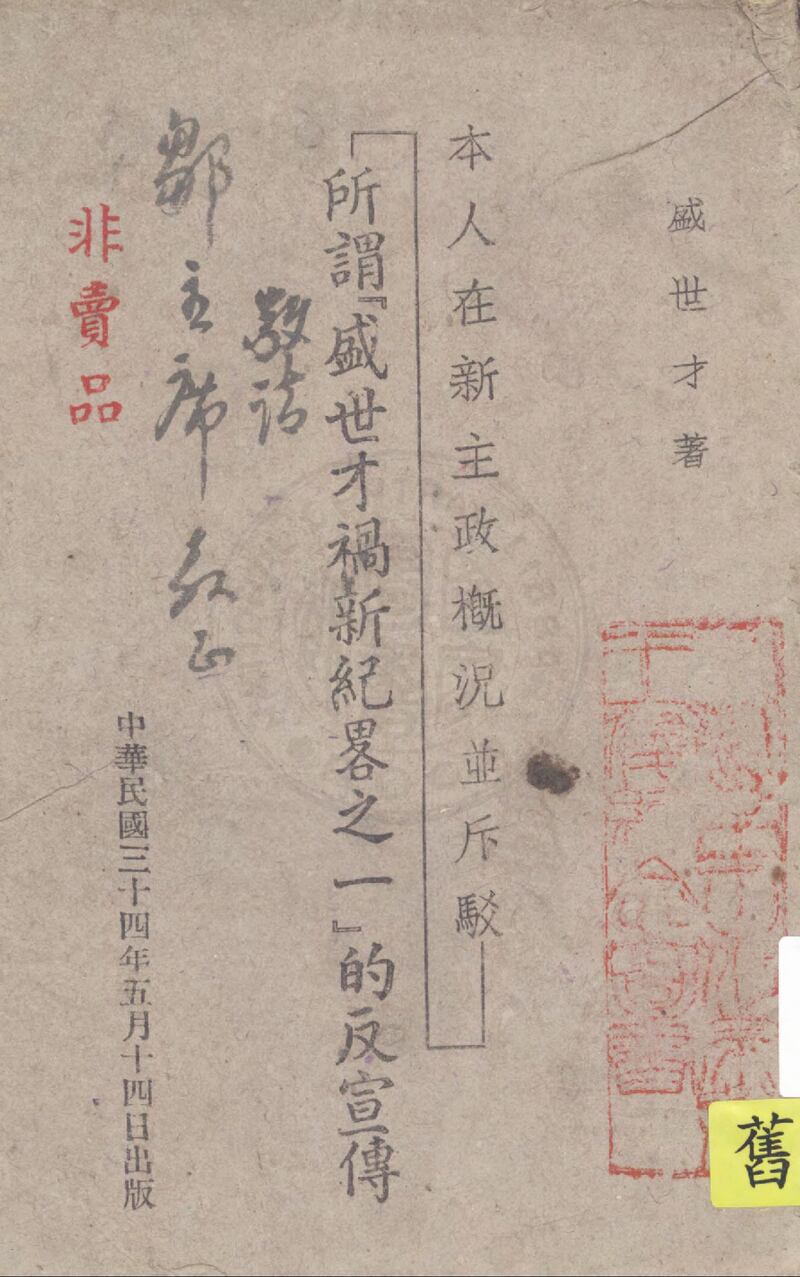 盛世才著
本人在新主政概況並斥駁
所謂『盛世才禍新紀畧之一』的反宣傳
敬請
鄒主席 教正
非賣品
中華民國三十四年五月十四日出版
舊